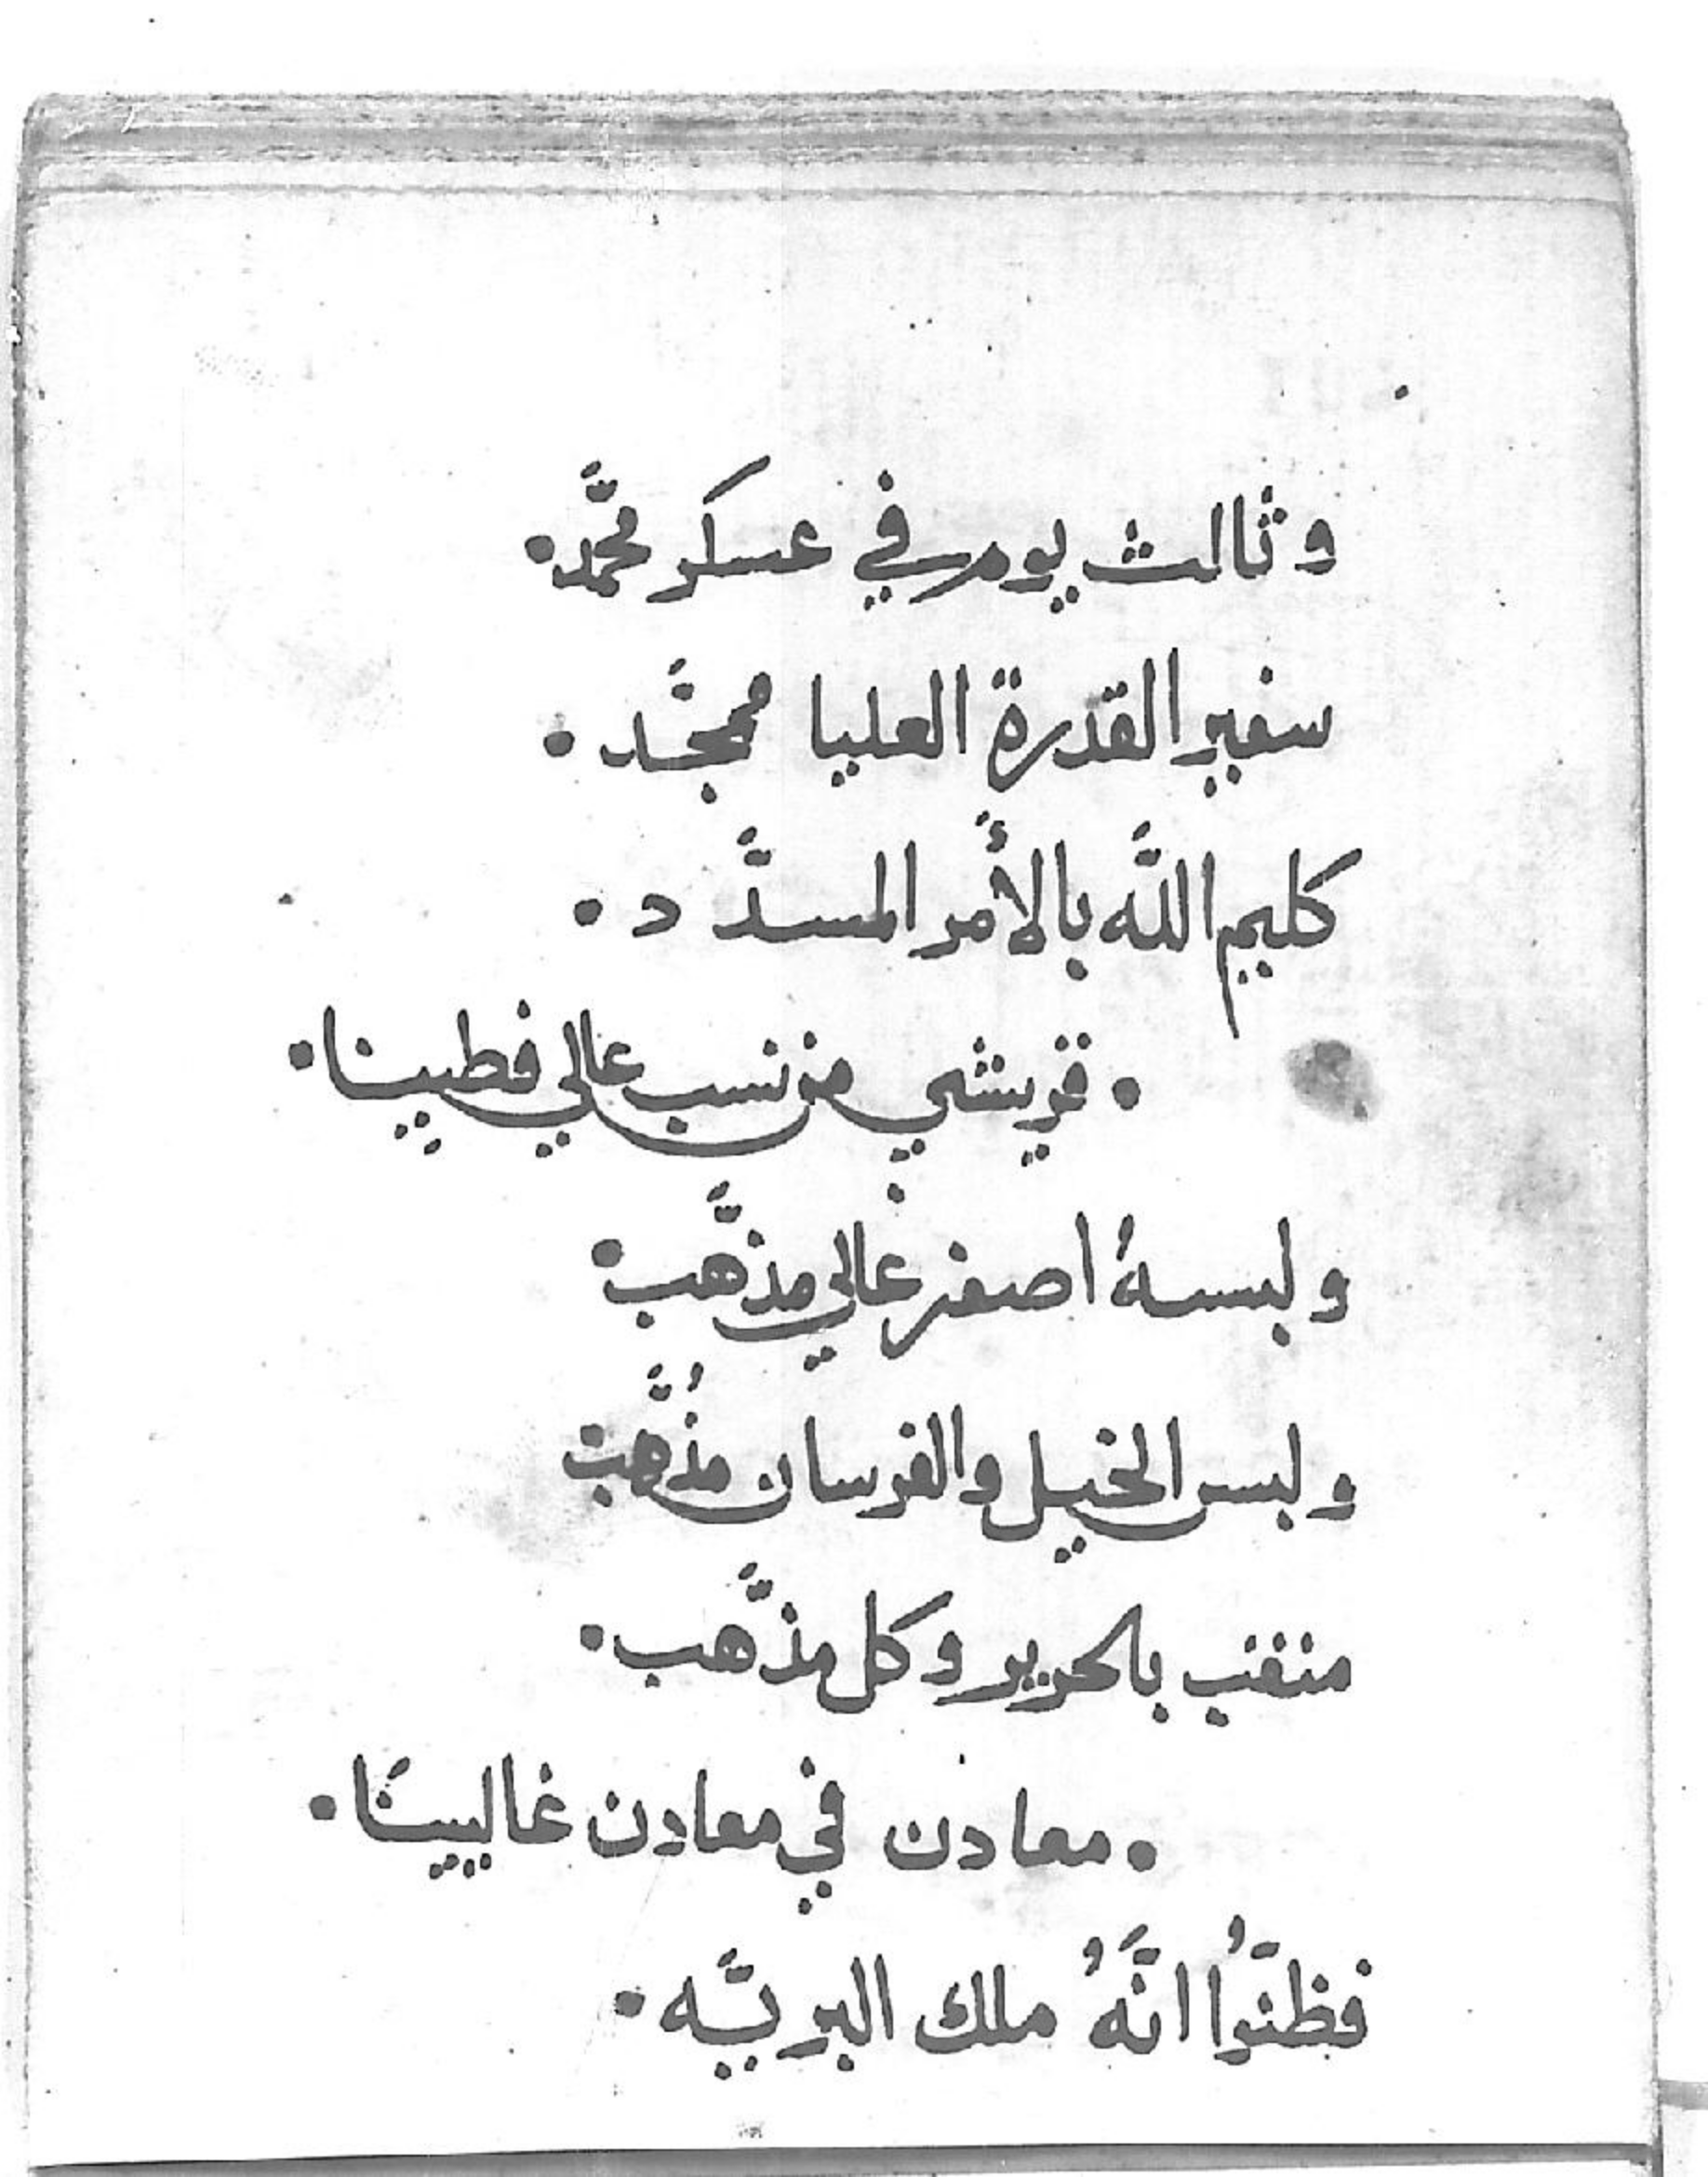 وثالث يوم في عسكر محمَّد •
سفير القدرة العليا ممجَّد •
كليم اللَّه بالأَمر المسدَّد •
• قريشي من نسب عالي فطيينا •
ولبسهُ اصفر عالي مذَّهب •
ولبس الخيل والفرسان مذُّهب
منقب بالحرير وكل مذَّهب •
• معادن في معادن غاليينَا •
فظنّوُا انَّهُ ملك البريَّه •